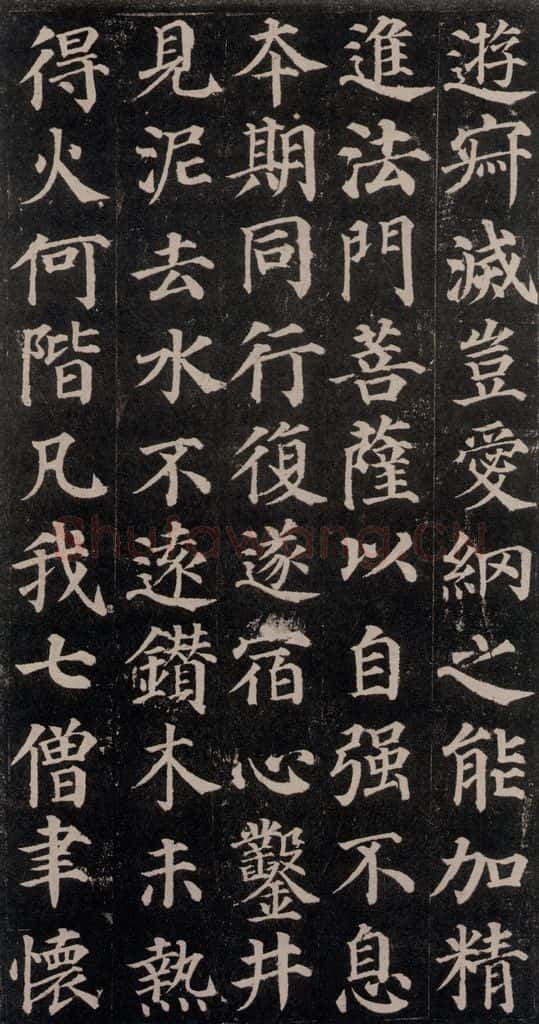 遊寂滅豈愛網之能加精
進法門菩薩以自强不息
本期同行復遂宿心鑿井
見泥去水不遠鑽木未熱
得火何階凡我七僧聿懷
Shufawang.cn